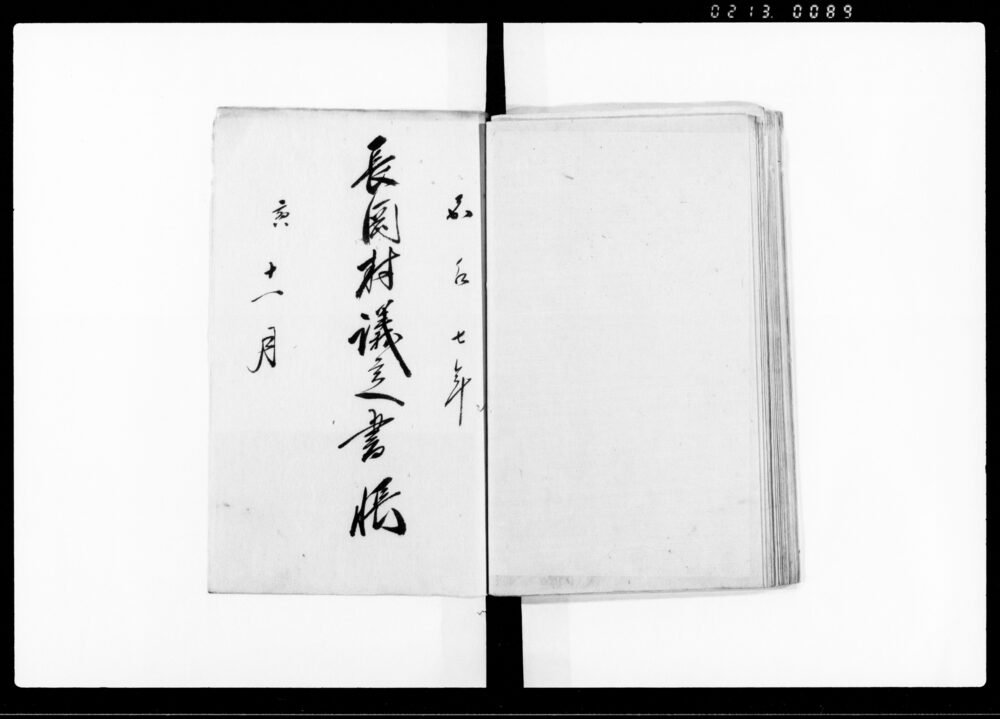 嘉永七年
長岡村議定書帳
寅十一月
0213. 0089